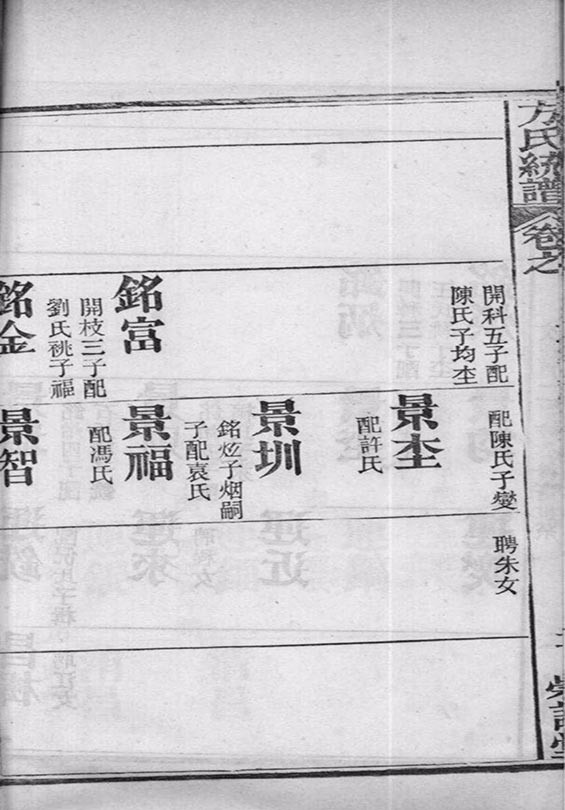 方氏統譜
卷之
開科五子配
陳氏子均坓
銘富
開枝三子配
劉氏祧子福
銘金
配陳氏子變
景坓
配許氏
景圳
銘炫子烟嗣
子配袁氏
景福
配馮氏
景智
聘朱女